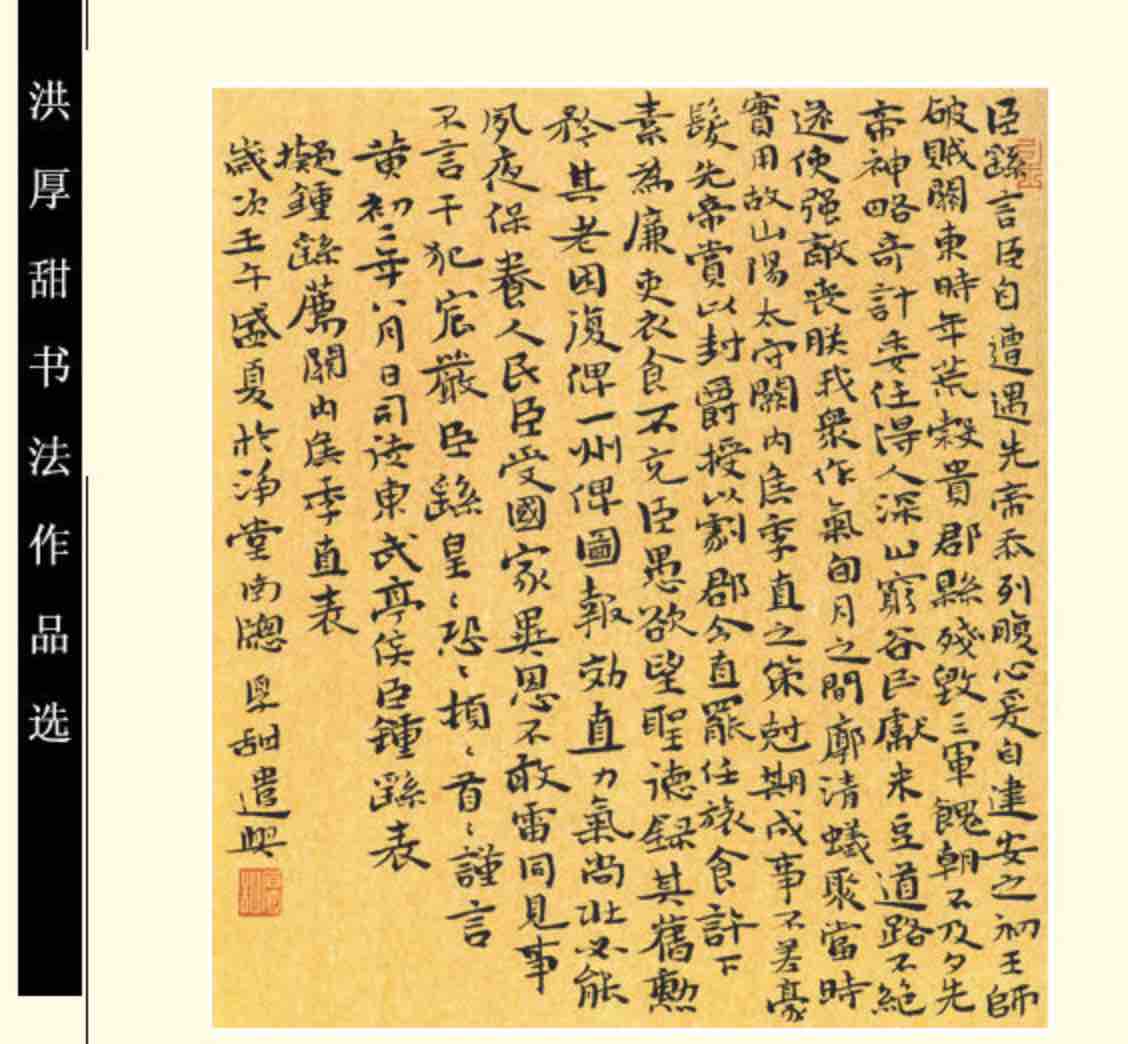 洪厚甜书法作品选
臣繇言臣自遭遇先帝忝列腹心爰自建安之初王師
破賊關東時年荒穀貴郡縣殘毀三軍餽朝不及夕先
帝神略奇計委任得人深山窮谷民獻米豆道路不絕
遂使强敵喪膽我衆作氣旬月之間廓清蟻聚當時
實用故山陽太守關内侯季直之策尅期成事不差豪
髮先帝賞以封爵授以劇郡今直罷任旅食許下
素為廉吏衣食不充臣愚欲望聖德錄其舊勲
矜其老困復俾一州俾圖報効直力氣尚壯必能
夙夜保養人民臣受國家異恩不敢雷同見事
不言干犯宸嚴臣繇皇〻恐〻頓〻首〻謹言
黄初二年八月日司徒東武亭侯臣鍾繇表
擬鍾繇薦關内侯季直表
歲次壬午盛夏於淨堂南牕 厚甜遣興